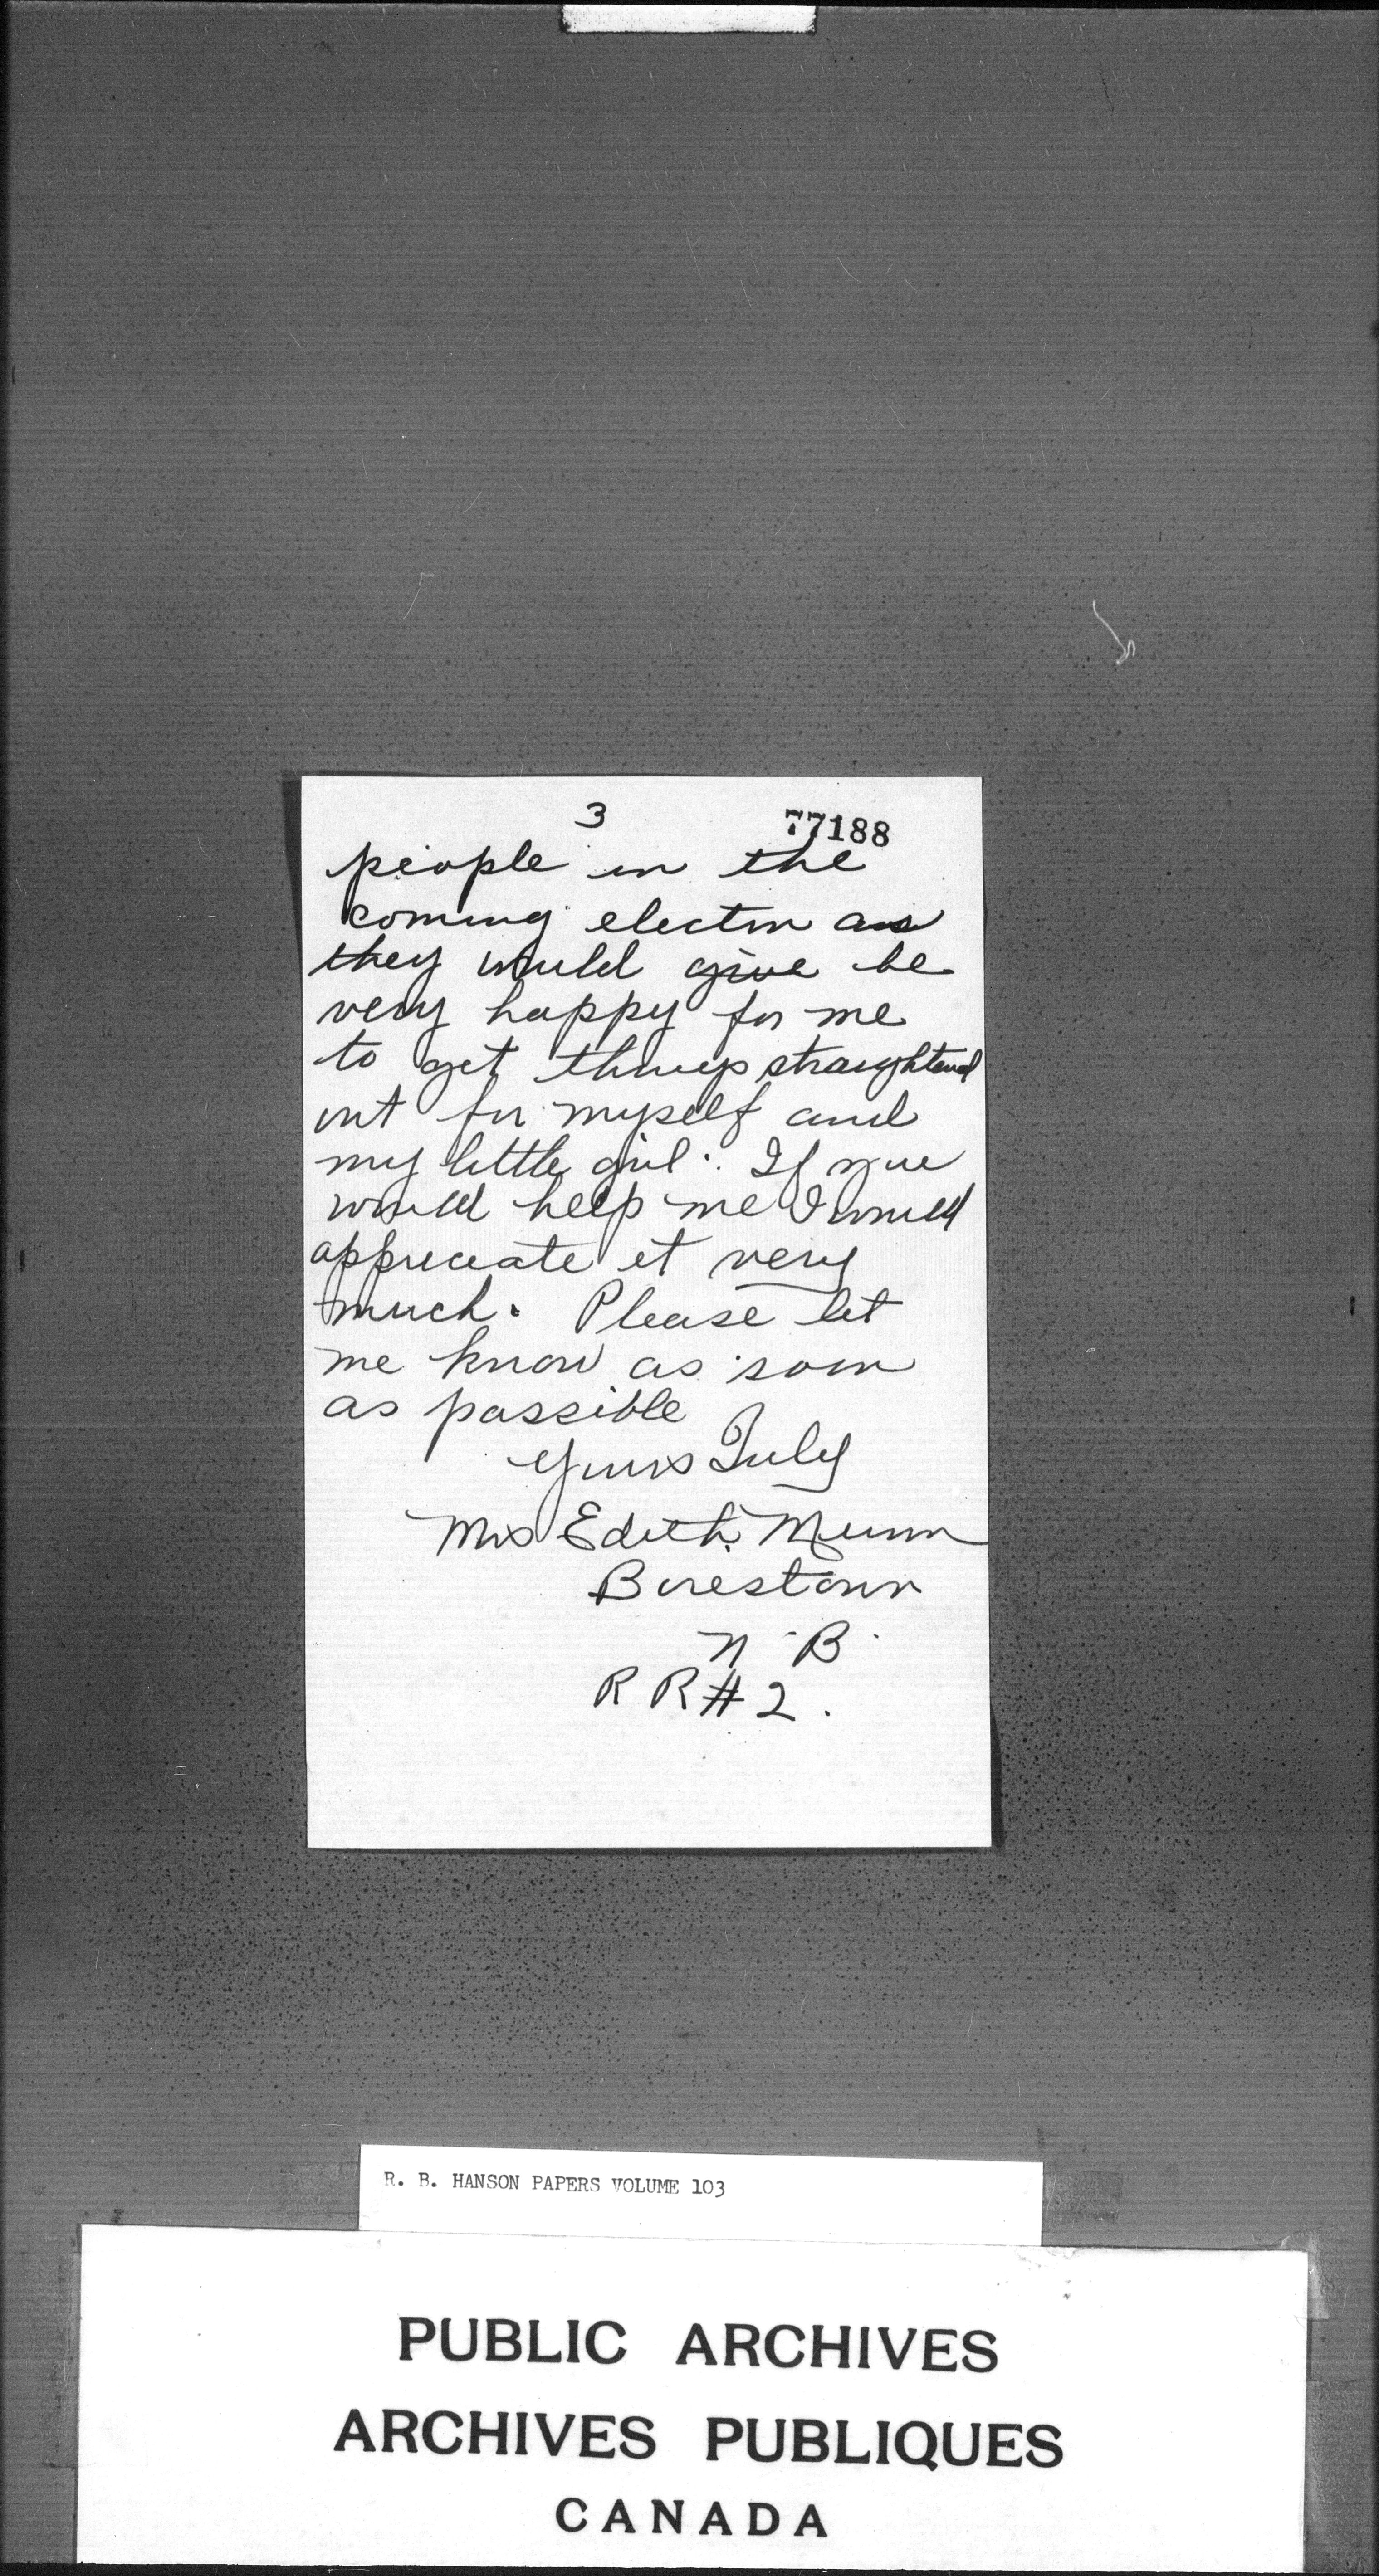 3
77188
people in the
coming election as
they would give be
very happy for me
to get things straightened
out for myself and
my little girl. If you
would help me I would
appreciate it very
much. Please let
me know as soon
as possible
Yours Truly
Mrs Edith Munn
Boiestown
N. B.
R R # 2.
R. B. HANSON PAPERS VOLUME 103
PUBLIC ARCHIVES
ARCHIVES PUBLIQUES
CANADA